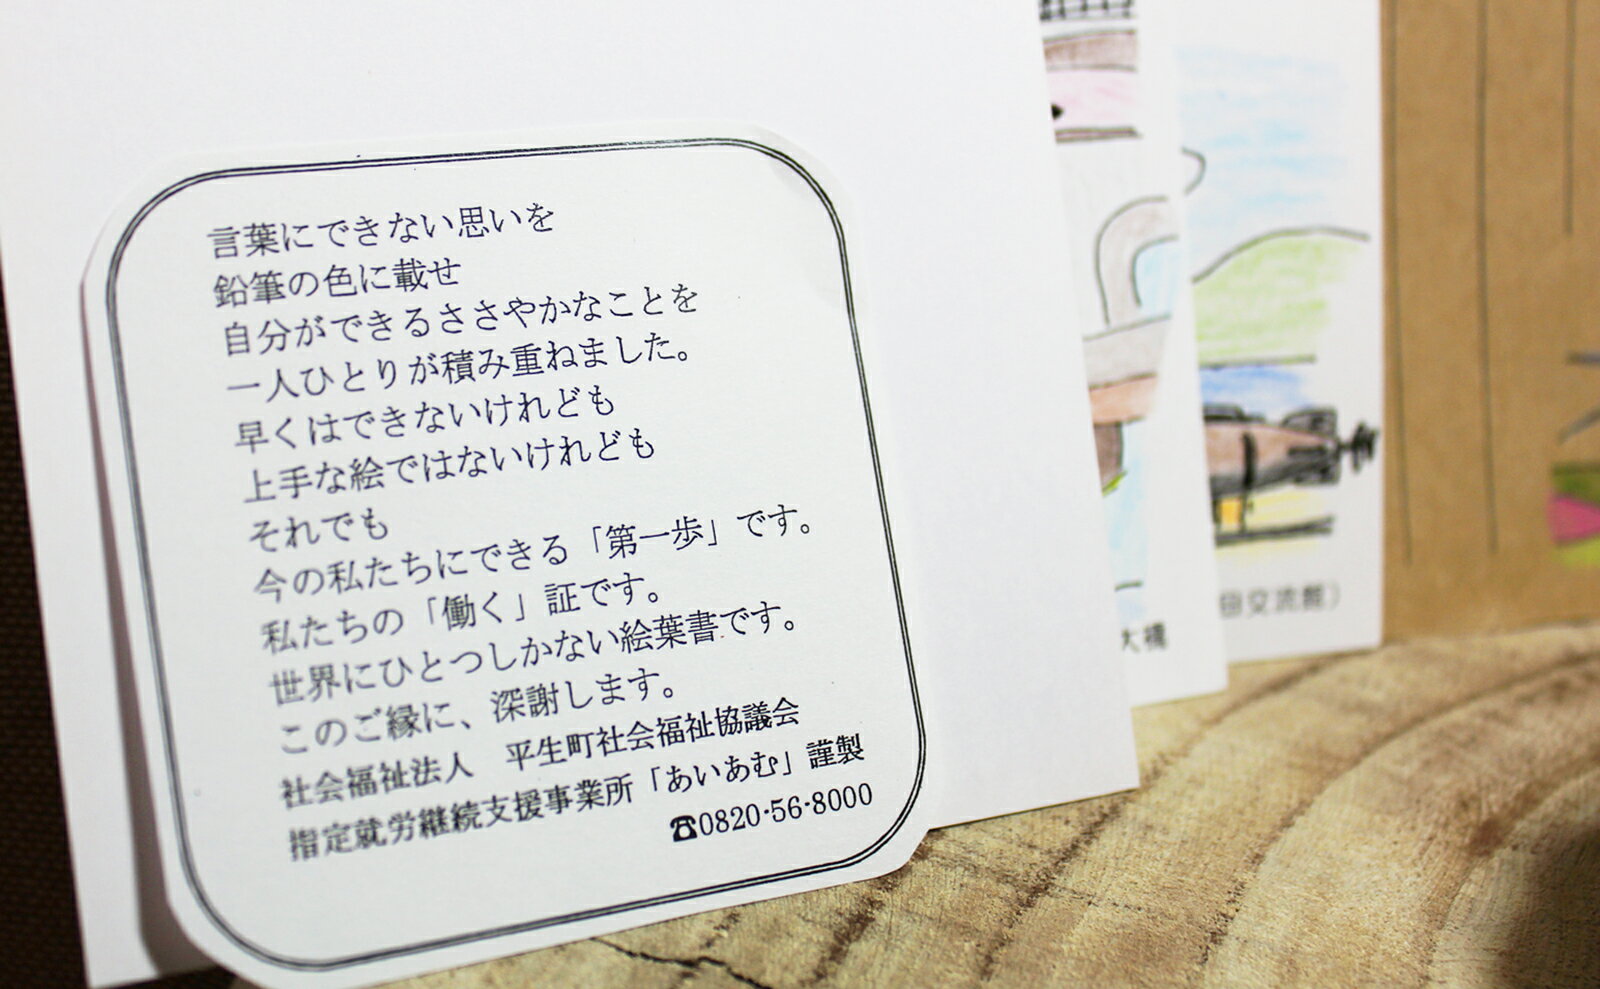 言葉にできない思いを
鉛筆の色に載せ
自分ができるささやかなことを
一人ひとりが積み重ねました。
早くはできないけれども
上手な絵ではないけれども
それでも
今の私たちにできる「第一歩」です。
私たちの「働く」証です。
世界にひとつしかない絵葉書です。
このご縁に、深謝します。
社会福祉法人　平生町社会福祉協議会
指定就労継続支援事業所「あいあむ」謹製
☎0820・56・8000
大橋
田交流館）